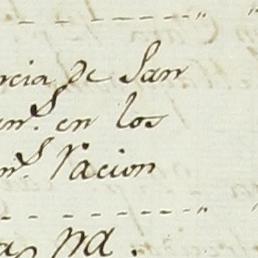 rcia de San
en.^s en los
n.^s Nacion
a, pa.